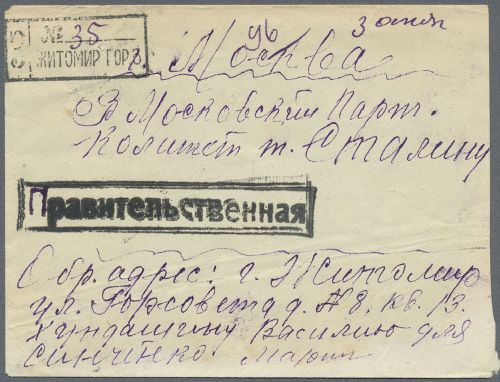 З № 35
ЖИТОМИР ГОР.
96
г. Москва
В Московский Парт.
Комитет т. Сталину
Правительственная
Обр. адрес: г. Житомир
ул. Горсовета д. № 8. кв. 13.
Василию для
Синченко Марии